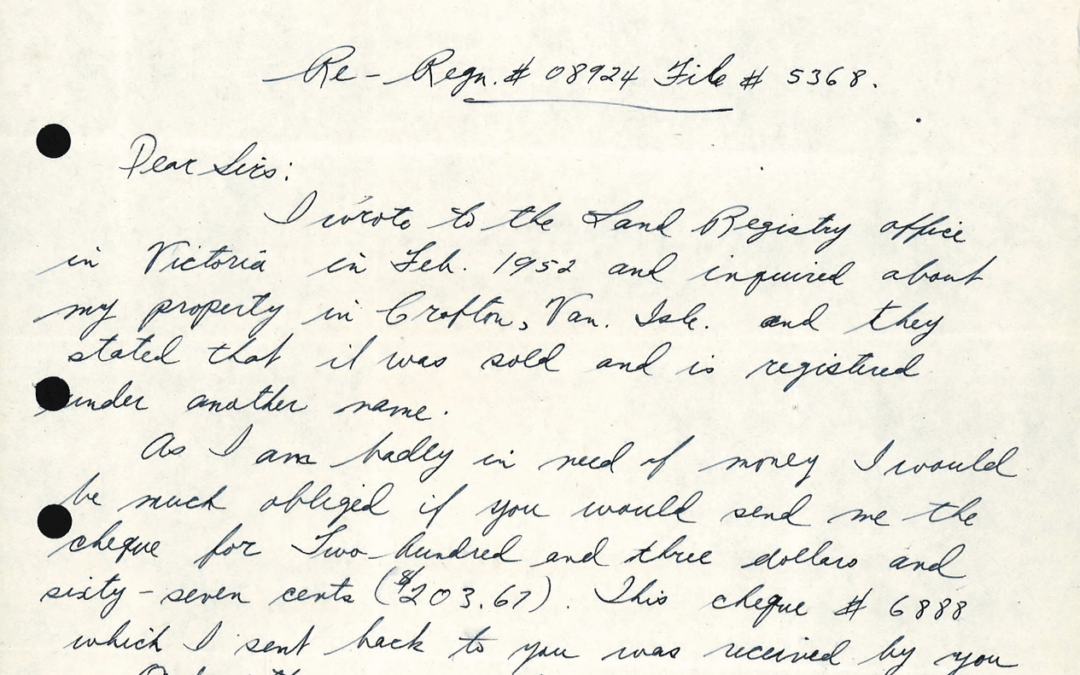 Re - Regn. # 08924 File # 5368.
Dear Sirs:
I wrote to the Land Registry office
in Victoria in Feb. 1952 and inquired about
my property in Crofton, Van. Isl. and they
stated that it was sold and is registered
under another name.
As I am badly in need of money I would
be much obliged if you would send me the
cheque for Two-hundred and three dollars and
sixty-seven cents ($203.67). This cheque # 6888
which I sent back to you was received by you